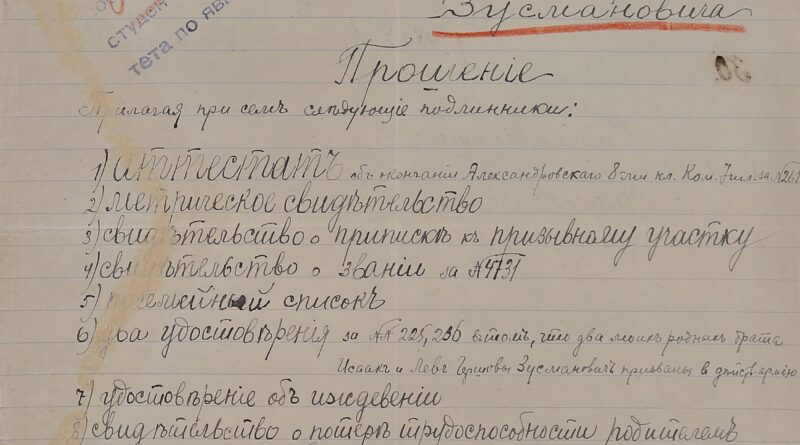 студен
тета по яв
Зусмановича
Прошеніе
Прилагая при семъ слѣдующіе подлинники:
1) аттестатъ объ окончаніи Александровскаго 8ми кл. Ком. Учил. за №261
2) метрическое свидѣтельство
3) свидѣтельство о припискѣ къ призывному участку
4) свидѣтельство о званіи за №4731
5) посемейный списокъ
6) два удостовѣренія за №№ 225, 236 в томъ, что два моихъ родныхъ брата
Исаакъ и Левъ Зусмановичъ призваны в дѣйств. армію
7) удостовѣреніе объ иждевеніи
8) свидѣтельство о потерѣ трудоспособности родителемъ